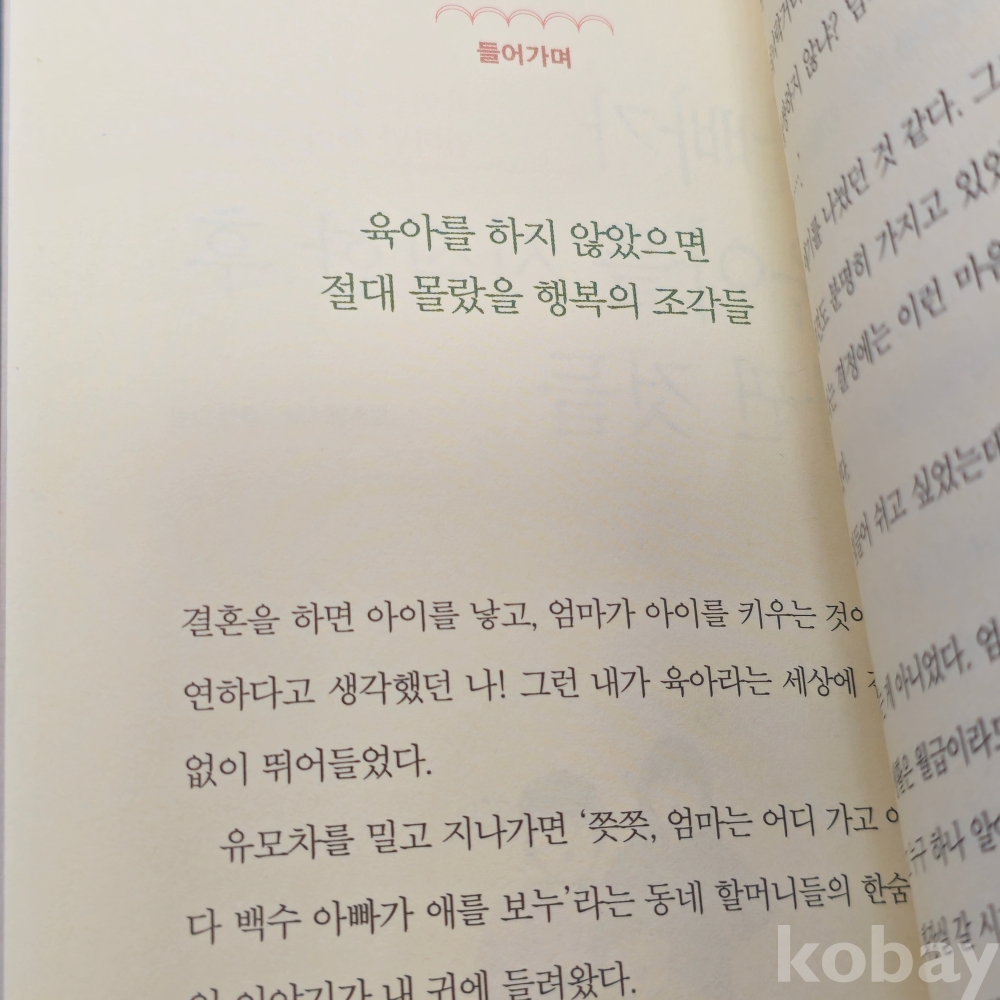 들어가며
육아를 하지 않았으면
절대 몰랐을 행복의 조각들
결혼을 하면 아이를 낳고, 엄마가 아이를 키우는 것이
연하다고 생각했던 나! 그런 내가 육아라는 세상에
없이 뛰어들었다.
유모차를 밀고 지나가면 ‘쯧쯧, 엄마는 어디 가고
다 백수 아빠가 애를 보누’라는 동네 할머니들의 한숨
이야기가 내 귀에 들려왔다.
하지 않나?
나눴던 것 같다. 그
분명히 가지고 있었
결정에는 이런 마음
쉬고 싶었는데
아니었다. 엄
월급이라도
누구 하나 알아
갈 시
kobay